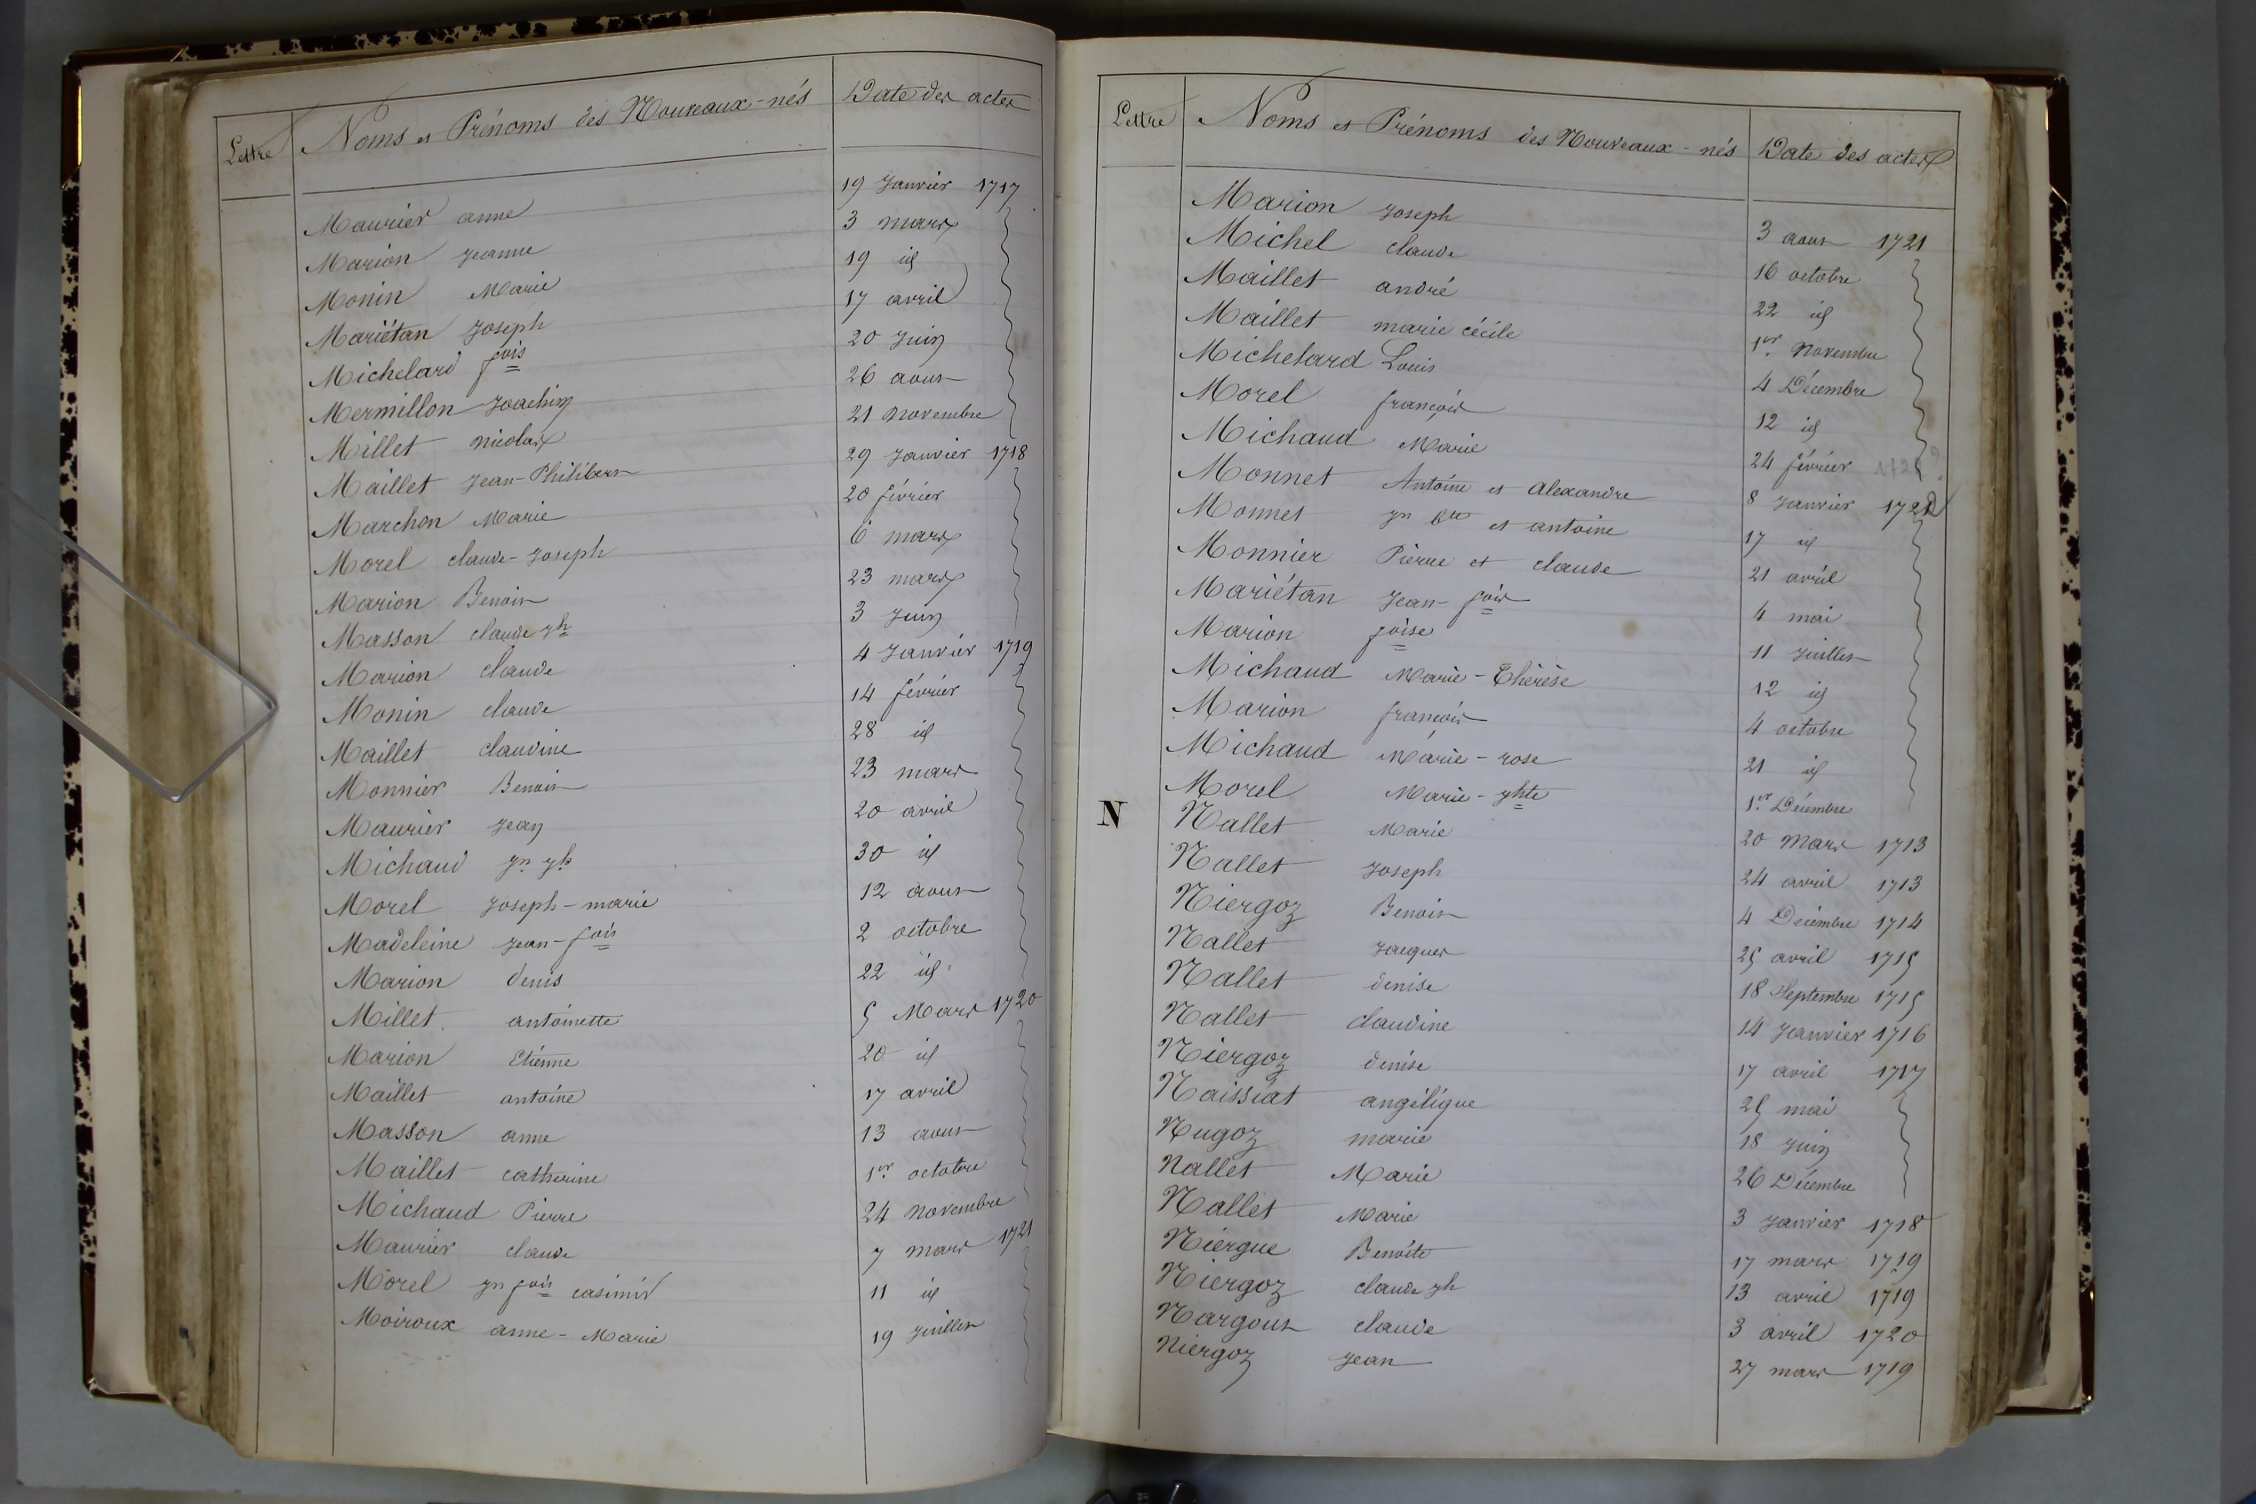 Lettre Noms et Prénoms des Nouveaux-nés Date des actes
Maurier anne 19 Janvier 1717
Marion Jeanne 3 mars
Monin Marie 19 id
Mariétan Joseph 17 avril
Michelard fois 20 Juin
Mermillon Joachim 26 aout
Millet nicolas 21 novembre
Maillet Jean-Philibert 29 Janvier 1718
Marchon Marie 20 février
Morel claude-Joseph 6 mars
Marion Benoit 23 mars
Masson claude jh 3 Juin
Marion claude 4 Janvier 1719
Monin claude 14 février
Maillet claudine 28 id
Monnier Benoit 23 mars
Maurier Jean 20 avril
Michaud jn jh 30 id
Morel Joseph-marie 12 aout
Madeleine Jean-fois 2 octobre
Marion denis 22 id
Millet antoinette 5 Mars 1720
Marion Etienne 20 id
Maillet antoine 17 avril
Masson anne 13 aout
Maillet catherine 1er octobre
Michaud Pierre 24 novembre
Maurier claude 7 mars 1721
Morel jn fois casimir 11 id
Moiroux anne-Marie 19 Juillet
Lettre Noms et Prénoms des Nouveaux-nés Date des actes
Marion Joseph 3 aout 1721
Michel claude 16 octobre
Maillet andré 22 id
Maillet marie cécile 1er Novembre
Michelard Louis 4 Décembre
Morel françois 12 id
Michaud Marie 24 février
Monnet Antoine et alexandre 8 Janvier 1722
Monnet jn bte et antoine 17 id
Monnier Pierre et claude 21 avril
Mariétan Jean-fois 4 mai
Marion foise 11 Juillet
Michaud Marie-Thérèse 12 id
Marion françois 4 octobre
Michaud Marie-rose 21 id
Morel Marie-jhte 1er Décembre
N Nallet Marie 20 Mars 1713
Nallet Joseph 24 avril 1713
Niergoz Benoit 4 Décembre 1714
Nallet Jacques 25 avril 1715
Nallet denise 18 Septembre 1715
Nallet claudine 14 Janvier 1716
Niergoz denise 17 avril 1717
Naissiat angélique 25 mai
Nugoz marie 18 Juin
Nallet Marie 26 Décembre
Nallet Marie 3 Janvier 1718
Niergue Benoite 17 mars 1719
Niergoz claude jh 13 avril 1719
Nargout claude 3 avril 1720
Niergoz Jean 27 mars 1719